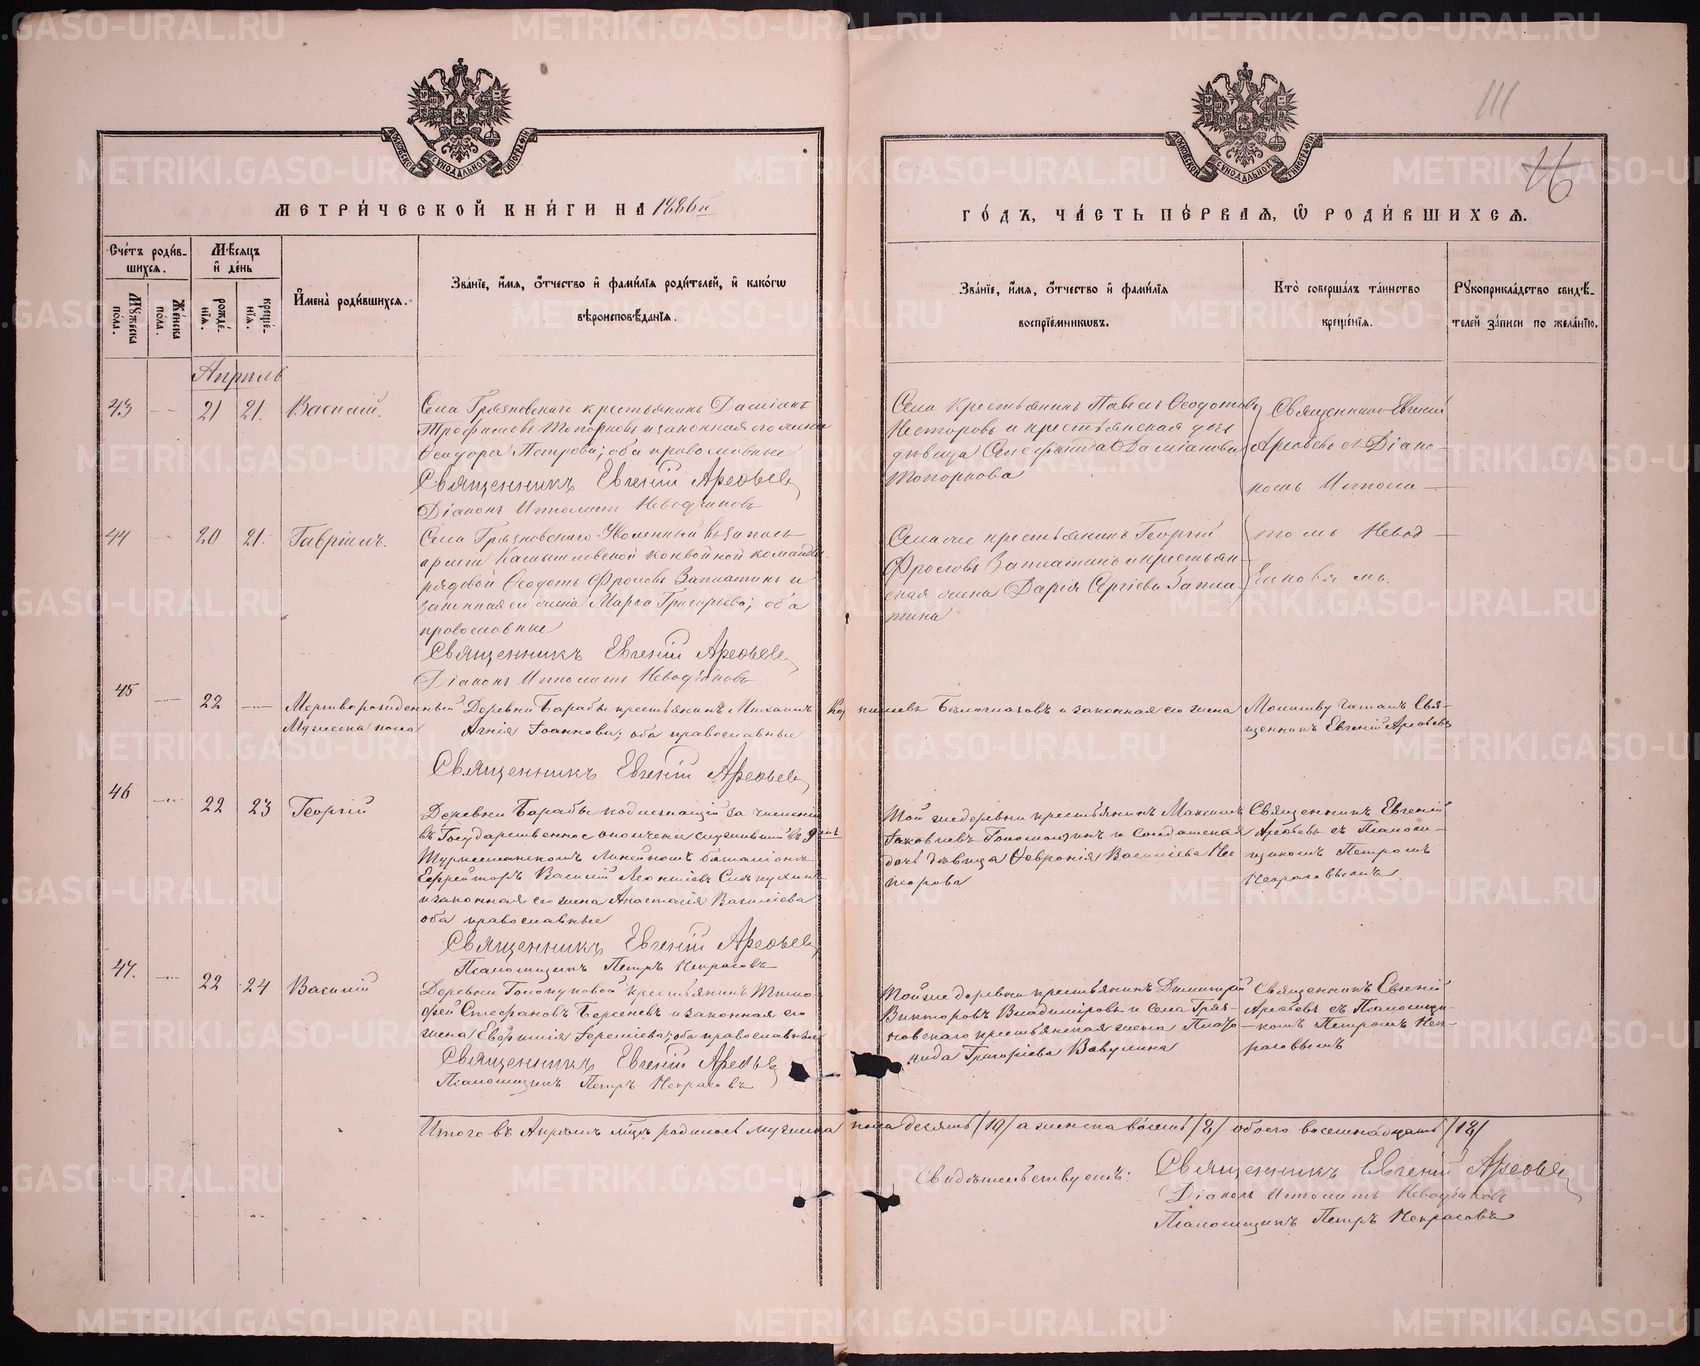 МЕТРИ́ЧЕСКОЙ КНИ́ГИ НА 1886й
ГО́ДЪ, ЧА́СТЬ ПЕ́РВАЯ, Ѿ РОДИ́ВШИХСЯ.
111
16
Сче́тъ роди́в-
шихся.
Мꙋ́жеска
по́ла.
Же́нска
по́ла.
Мѣ́сяцъ
и҆ де́нь
рожде́-
нїя.
креще́-
нїя.
И҆мена̀ роди́вшихся.
Зва́нїе, и҆́мя, ѻ҆́тчество и҆ фами́лїя роди́телей, и҆ како́гѡ
вѣроисповѣ́данїя.
Зва́нїе, и҆́мя, ѻ҆́тчество и҆ фами́лїя
воспрїе́мникѡвъ.
Кто̀ соверша́лъ та́инство
креще́нїя.
Рꙋкоприкла́дство свидѣ́-
телей за́писи по жела́нїю.
Апрѣль
43 21 21. Василій.
Села Грязновскаго крестьянинъ Даміанъ
Трофимовъ Топорковъ и законная его жена
Ѳеодора Петрова; оба православные
Священникъ Евгеній Арефьевъ
Діаконъ Ипполитъ
Села крестьянинъ Павелъ Ѳеодотовъ
Несторовъ и крестьянская дочь
дѣвица Даміанова
Топоркова
Священникъ Евгеній
Арефьевъ съ Діако-
номъ Иппoли-
44 20 21. Гавріилъ.
Села Грязновскаго Уволенный въ запасъ
арміи Камышловской конвойной команды
рядовой Ѳеодотъ Фроловъ Заплатинъ и
законная его жена Марѳа Григорьева; оба
православные
Священникъ Евгеній Арефьевъ
Діаконъ Ипполитъ
Села сего крестьянинъ Георгій
Фроловъ Заплатинъ и крестьян-
ская жена Дарія Сергіева Запла-
тина
томъ
45 22 Мертворожденный
Мужеска пола
Деревни Барабы крестьянинъ Михаилъ Кор
ниловъ Бѣлоглазовъ и законная его жена
Агнія Іоаннова; оба православные
Священникъ Евгеній Арефьевъ
Молитву читалъ Свя-
щенникъ Евгеній Арефьевъ
46 22 23 Георгій
Деревни Барабы подлежащій зачисленію
въ Государственное ополченіе служившій въ 9мъ
Туркестанскомъ Линейномъ баталіонѣ
Ефрейторъ Василій Леонтіевъ
и законная его жена Анастасія Василіева
оба православные
Священникъ Евгеній Арефьевъ
Псаломщикъ Петръ Некрасовъ
Той же деревни крестьянинъ Максимъ
Іаковлевъ и Солдатская
дочь дѣвица Февронія Василіева Не-
сторова
Священникъ Евгеній
Арефьевъ съ Псалом-
щикомъ Петромъ
Некрасовымъ.
47. 22 24 Василій
Деревни Голопуповой крестьянинъ Тимо-
фей Стефановъ Берсеневъ и законная его
жена Евфимія Іереміева; оба православные
Священникъ Евгеній Арефьевъ
Псаломщикъ Петръ Некрасовъ
Той же деревни крестьянинъ Димитрій
Викторовъ Владиміровъ и села Гряз-
новскаго крестьянская жена
Григоріева Вавулина
Священникъ Евгеній
Арефьевъ съ Псаломщи-
комъ Петромъ Нек-
расовымъ
Итого въ Апрѣлѣ м-цѣ родилось мужеска пола десять /10/ а женска восемь /8/ обоего восемнадцать /18/
Свидѣтельствуютъ: Священникъ Евгеній Арефьевъ
Діаконъ Ипполитъ
Псаломщикъ Петръ Некрасовъ
METRIKI.GASO-URAL.RU